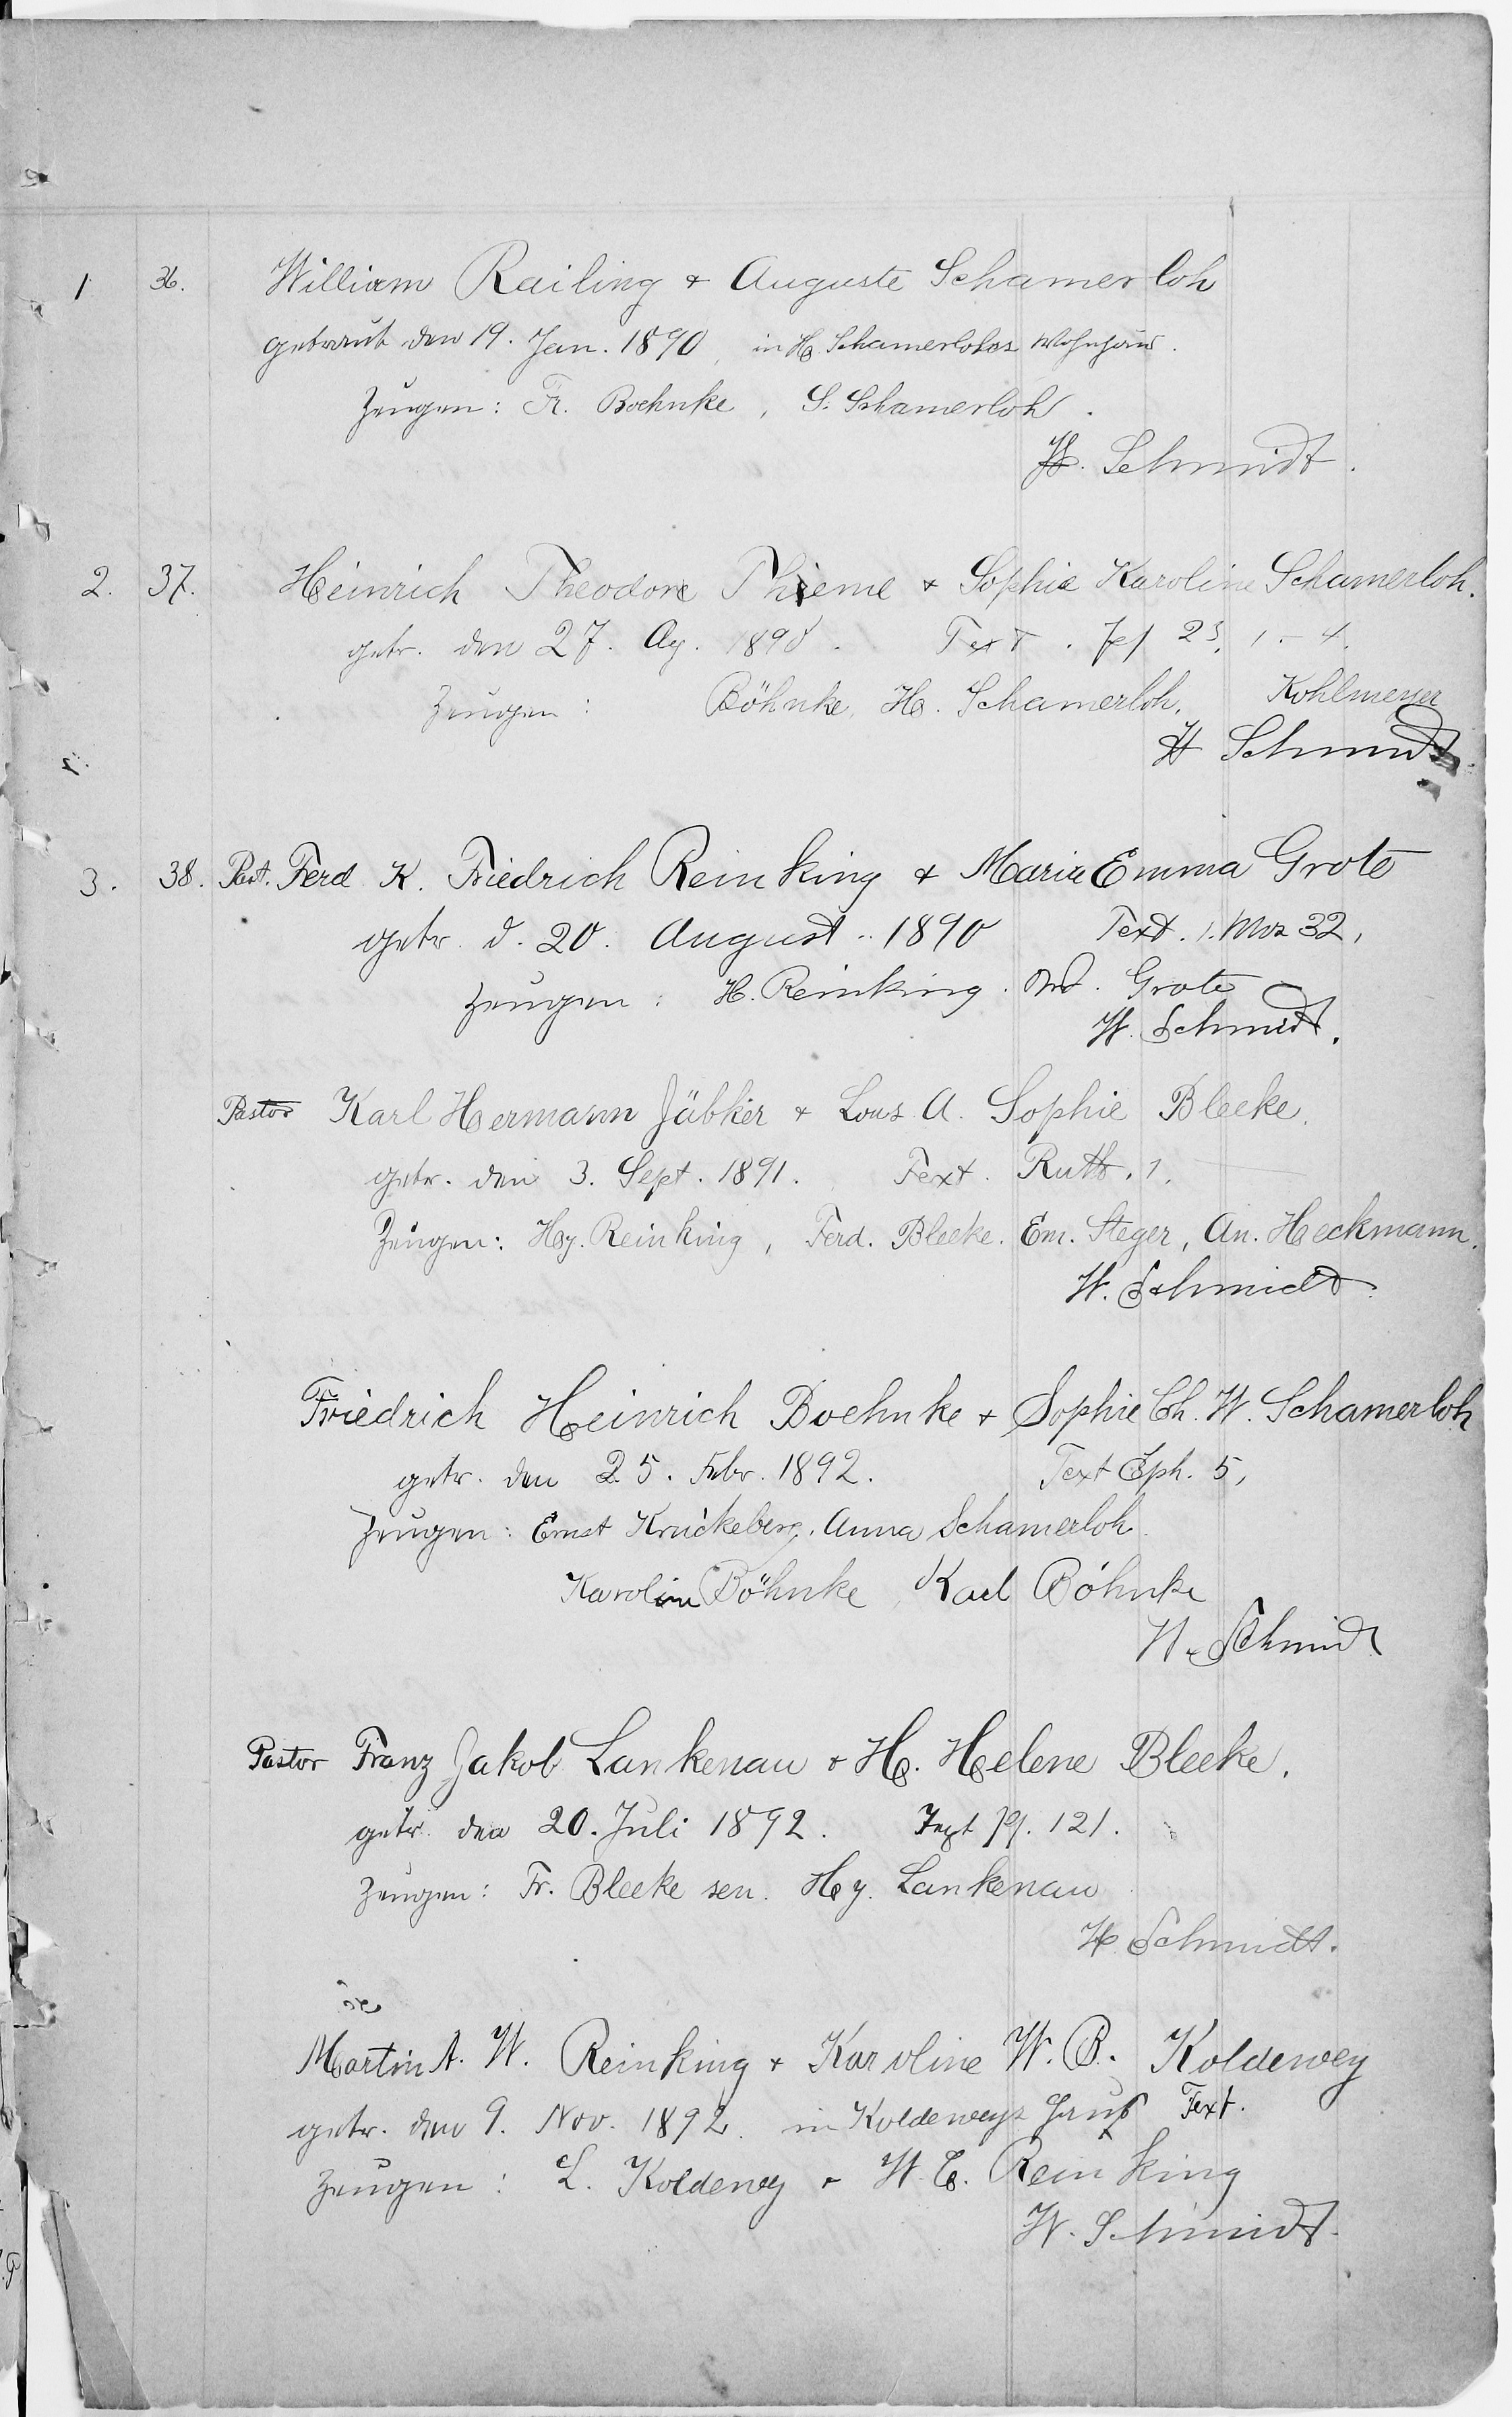 1 36. William Railing + Auguste Schamerloh
getraut den 19. Jan. 1890, in H. Schamerlohs Wohnhaus.
Zeugen: Fr. Boehnke, S. Schamerloh.
H. Schmidt.
2. 37. Heinrich Theodore Thieme + Sophie Karoline Schamerloh.
getr. den 27. Ap. 1890. Text. Ps 23, 1-4.
Zeugen: Böhnke, H. Schamerloh, Kohlmeyer
H Schmidt.
3. 38. Past. Ferd K. Friedrich Reinking + Maria Emma Grote
getr. d. 20. August. 1890 Text. 1. Mos 32,
Zeugen: H. Reinking. Grote
W. Schmidt.
Pastor Karl Hermann Jäbker + Lous. A. Sophie Bleeke.
getr. den 3. Sept. 1891. Text. Ruth. 1.
Zeugen: Hy. Reinking, Ferd. Bleeke. Em. Steger, An. Heckmann.
W. Schmidt.
Friedrich Heinrich Boehnke + Sophie Ch. W. Schamerloh
getr. den 25. Febr. 1892. Text Eph. 5,
Zeugen: Ernst Kruckeberg, Anna Schamerloh.
Karoline Böhnke, Karl Böhnke
W. Schmidt
Pastor Franz Jakob Lankenau + H. Helene Bleeke.
getr. den 20. Juli 1892. Text Ps. 121.
Zeugen: Fr. Bleeke sen. Hy. Lankenau
H. Schmidt.
Martin A. W. Reinking + Karoline W. B. Koldewey
getr. den 9. Nov. 1892. in Koldeweys Haus Text.
Zeugen: L. Koldewey + W. C. Reinking
W. Schmidt.